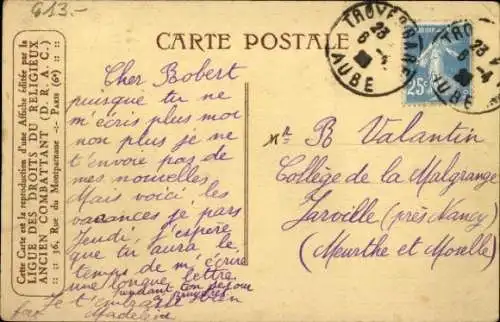 G13.-
CARTE POSTALE
Cette Carte est la reproduction d'une Affiche éditée par la
LIGUE DES DROITS DU RELIGIEUX
ANCIEN COMBATTANT (D. R. A. C.)
:: :: 16, Rue du Montparnasse -:- Paris (6e) :: ::
TROYES GARE
23
6-4
AUBE
TROY
23
6-4
AUBE
25c
Cher Robert
puisque tu ne
m'écris plus moi
non plus je ne
t'envoie pas de
mes nouvelles
Mais voici les
vacances je pars
Jeudi, j'espère
que tu aura le
temps de m'écrire
une longue lettre
pendant ton séjour
à Bruyères
Je t'embrasse bien
fort
Madeleine
Mr R Valantin
Collège de la Malgrange
Jarville (près Nancy)
(Meurthe et Moselle)